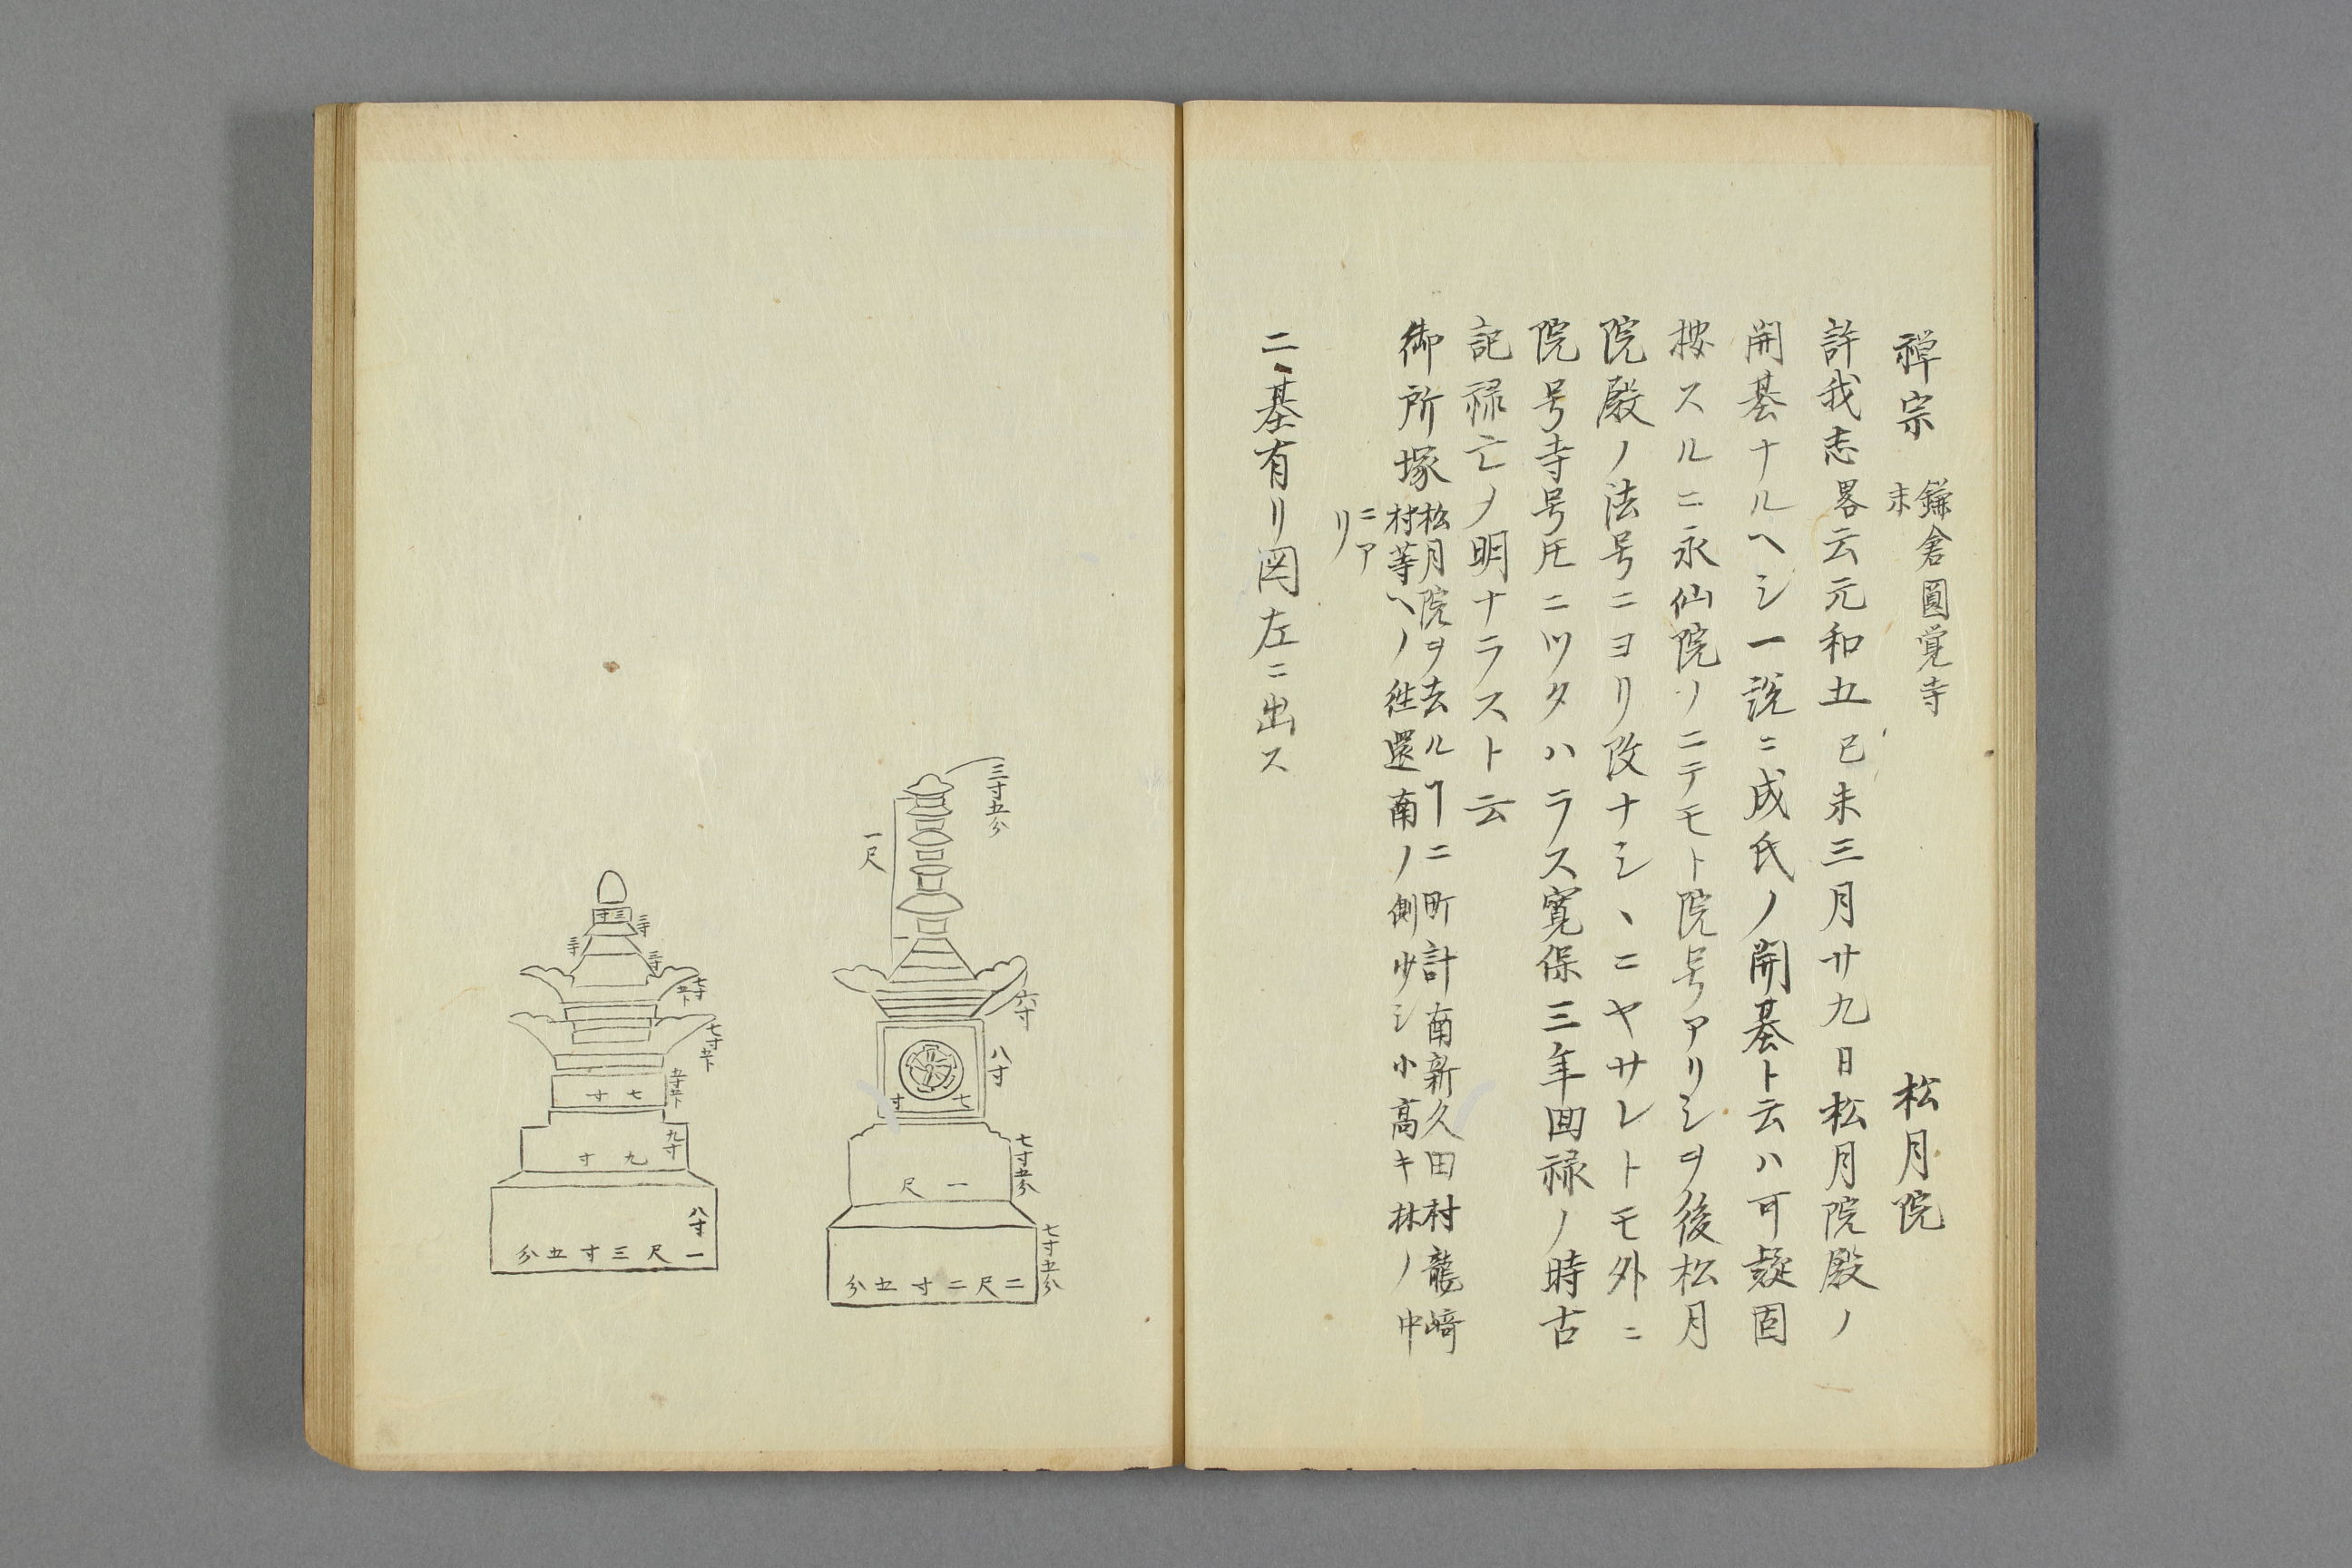 禅宗 鎌倉圓覚寺末 松月院
許我志畧云元和五己未三月廿九日松月院殿ノ
開基ナルヘシ一説ニ成氏ノ開基ト云ハ可疑固
按スルニ永仙院ノニテモト院号アリシヲ後松月
院殿ノ法号ニヨリ改ナシヽニヤサレトモ外ニ
院号寺号圧ニツタハラス寛保三年回禄ノ時古
記禄亡ノ明ナラスト云
御所塚
松月院ヲ去ルヿ二町計南新久田村龍崎
村等ヘノ徃還南ノ側少シ小高キ林ノ中
ニア
リ
二基有リ図左ニ出ス
三寸五分
一尺
六寸
八寸
七寸
七寸五分
一尺
七寸五分
二尺二寸五分
三寸
三寸
三寸
三寸
七寸五卜
七寸五卜
五寸五卜
七寸
九寸
九寸
八寸
一尺三寸五分